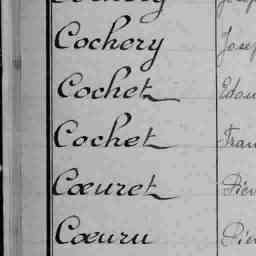 Cochery
Cochet Edou
Cochet Fran
Cœuret Pier
Cœuru Pier